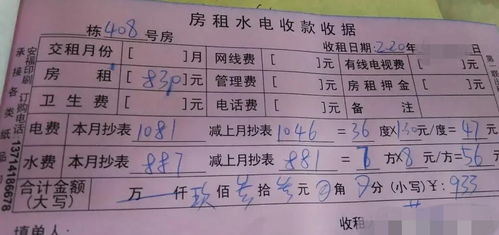 房租水电收款收据
栋408号房 收租日期:220年
交租月份[ ]月 网线费[ ]元 有线电视费[ ]元
房租[830]元 管理费[ ]元 房租押金[ ]元
卫生费[ ]元 电话费[ ]元 备注
电费 本月抄表1081 减上月抄表1046=36度×1.30元/度=47元
水费 本月抄表887 减上月抄表881=7方×8元/方=56元
合计金额(大写) 万仟玖佰叁拾叁元 角 分(小写)¥:933
填单人: 收租人
安福印刷 订购电话13714166678
承接各类纸品